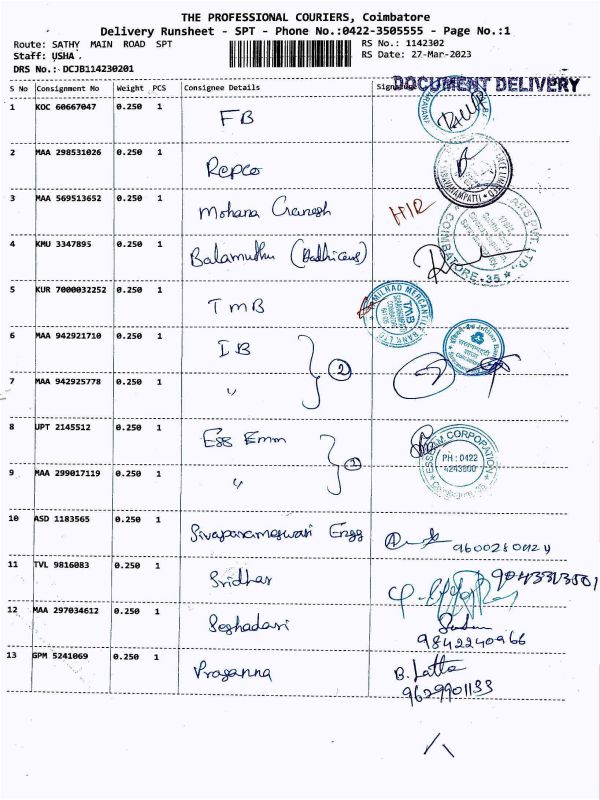 THE PROFESSIONAL COURIERS, Coimbatore
Delivery Runsheet - SPT - Phone No.:0422-3505555 - Page No.:1
Route: SATHY MAIN ROAD SPT RS No.: 1142302
Staff: USHA . RS Date: 27-Mar-2023
DRS No.: DCJB114230201
DOCUMENT DELIVERY
S No Consignment No Weight PCS Consignee Details
1 KOC 60667047 0.250 1 FB
2 MAA 298531026 0.250 1 Repco
3 MAA 569513652 0.250 1 Mohana Ganesh
4 KMU 3347895 0.250 1 Balamuthu
COIMBATORE-35
5 KUR 7000032252 0.250 1 TMB
TAMILNAD MERCANTILE BANK LTD
TMB
6 MAA 942921710 0.250 1 IB
2
7 MAA 942925778 0.250 1 "
8 UPT 2145512 0.250 1 Ess Emm
CORPORATION
PH : 0422
4243800
9 MAA 299017119 0.250 1 "
2
10 ASD 1183565 0.250 1 Sivaparameswari Engg
11 TVL 9816083 0.250 1 Sridhar
12 MAA 297034612 0.250 1 Seshadari
9842240966
13 GPM 5241069 0.250 1 Prasanna B. Latha
9629901133